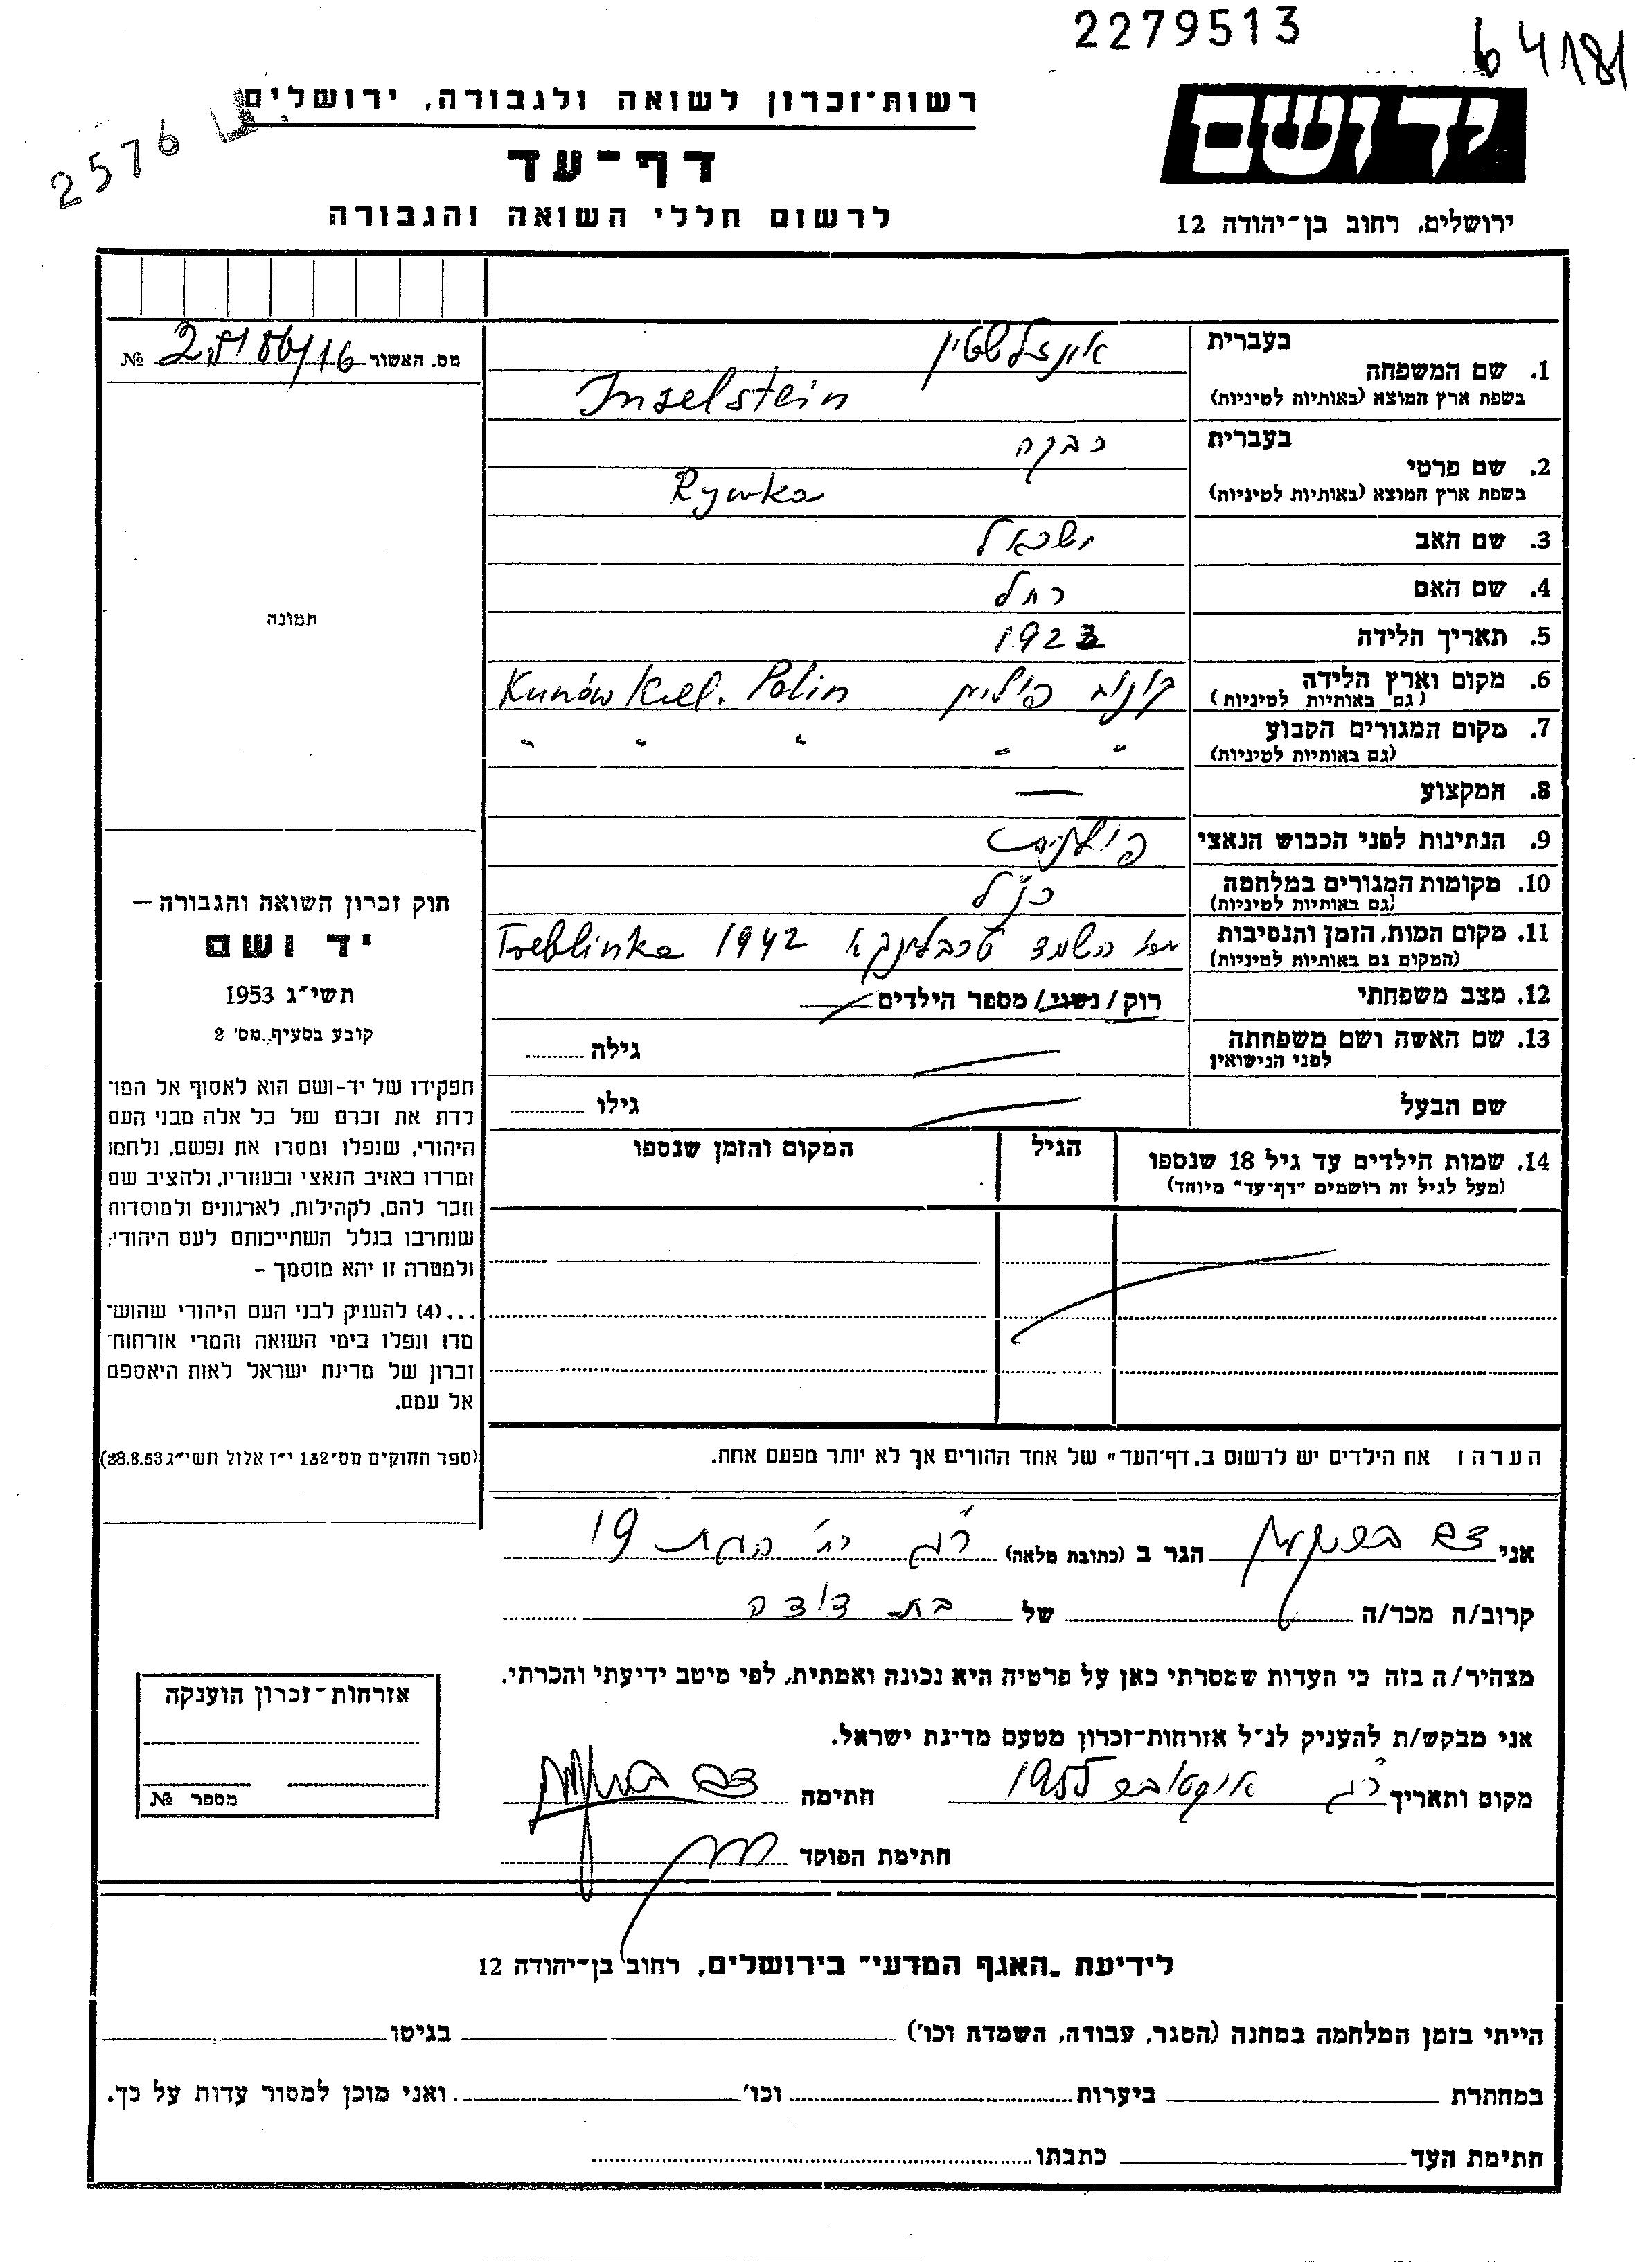 2279513
64181
2576
יד ושם
ירושלים, רחוב בן־יהודה 12
רשות־זכרון לשואה ולגבורה, ירושלים
דף־עד
לרשום חללי השואה והגבורה
מס. האשור №
1. שם המשפחה
בעברית אינזלשטין
בשפת ארץ המוצא (באותיות לטיניות) Inselstein
2. שם פרטי
בעברית רבקה
בשפת ארץ המוצא (באותיות לטיניות) Rywka
3. שם האב ישראל
4. שם האם רחל
5. תאריך הלידה 1923
6. מקום וארץ הלידה קונוב פולין Kunów Kiel. Polin
(גם באותיות לטיניות)
7. מקום המגורים הקבוע " " " " "
(גם באותיות לטיניות)
8. המקצוע —
9. הנתינות לפני הכבוש הנאצי פולנית
10. מקומות המגורים במלחמה כנ"ל
(גם באותיות לטיניות)
11. מקום המות, הזמן והנסיבות השמד טרבלינקא 1942 Treblinka
(המקום גם באותיות לטיניות)
12. מצב משפחתי רוק / נשוי / מספר הילדים
13. שם האשה ושם משפחתה גילה
לפני הנישואין
שם הבעל גילו
14. שמות הילדים עד גיל 18 שנספו הגיל המקום והזמן שנספו
(מעל לגיל זה רושמים "דף־עד" מיוחד)
הערה: את הילדים יש לרשום ב„דף־העד" של אחד ההורים אך לא יותר מפעם אחת.
תמונה
חוק זכרון השואה והגבורה —
יד ושם
תשי"ג 1953
קובע בסעיף מס' 2
תפקידו של יד-ושם הוא לאסוף אל המו־
לדת את זכרם של כל אלה מבני העם
היהודי, שנפלו ומסרו את נפשם, נלחמו
ומרדו באויב הנאצי ובעוזריו, ולהציב שם
וזכר להם, לקהילות, לארגונים ולמוסדות
שנחרבו בגלל השתייכותם לעם היהודי;
ולמטרה זו יהא מוסמך -
...(4) להעניק לבני העם היהודי שהוש־
מדו ונפלו בימי השואה והמרי אזרחות־
זכרון של מדינת ישראל לאות היאספם
אל עמם.
(ספר החוקים מס' 132 י"ז אלול תשי"ג 28.8.53)
אני הגר ב (כתובת מלאה) ר"ג רח' 19
קרוב/ה מכר/ה של בת דודה
מצהיר/ה בזה כי העדות שמסרתי כאן על פרטיה היא נכונה ואמתית, לפי מיטב ידיעתי והכרתי.
אני מבקש/ת להעניק לנ"ל אזרחות־זכרון מטעם מדינת ישראל.
מקום ותאריך ר"ג אוקטובר 1955 חתימה
חתימת הפוקד
אזרחות־זכרון הוענקה
מספר №
לידיעת „האגף המדעי" בירושלים, רחוב בן־יהודה 12
הייתי בזמן המלחמה במחנה (הסגר, עבודה, השמדה וכו') בגיטו
במחתרת ביערות וכו' ואני מוכן למסור עדות על כך.
חתימת העד כתבתו